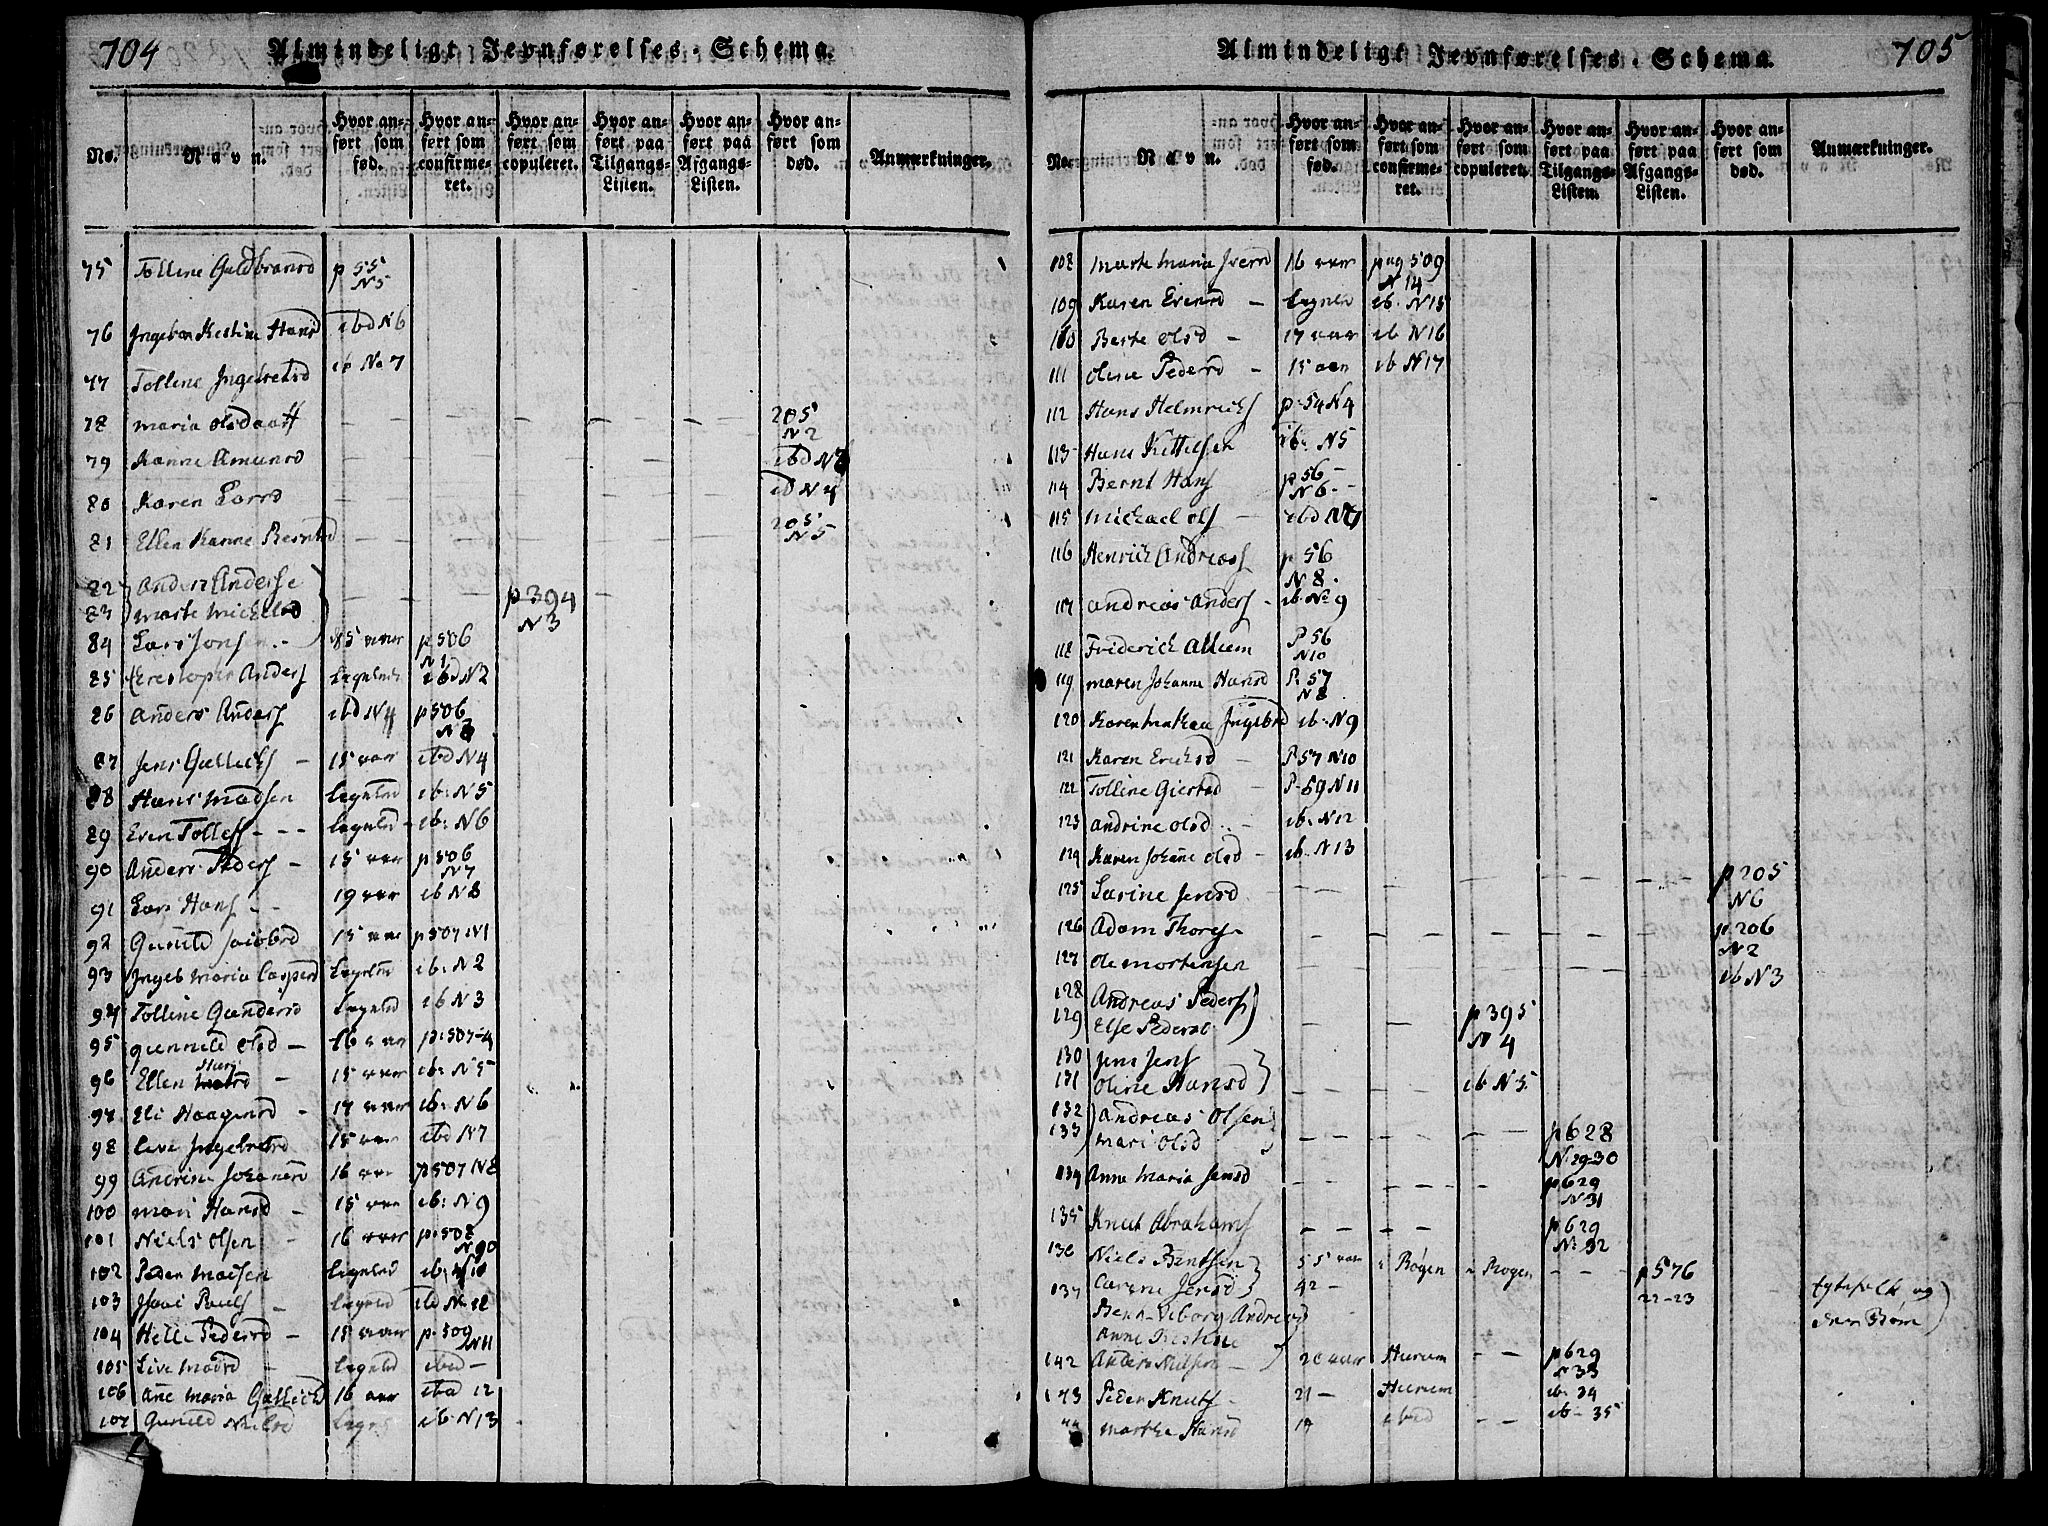 704
Almindeligt Jevnførelses-Schema.
No.
Navn.
Hvor anført som fød.
Hvor anført som confirmeret.
Hvor anført som copuleret.
Hvor anført paa Tilgangs-Listen.
Hvor anført paa Afgangs-Listen.
Hvor anført som død.
Anmærkninger.
75 Tolline Guldbransd p 55 N5
76 Ingebor Kestine Hansd ibd N6
77 Tolline Ingebretsd ib No 7
78 Maria Olsdaatt — — — — — 205 N2
79 Kanne Amunsd — — ibd N3
80 Karen Larsd — — — ib N4
81 Ellen Kanne Berntsd — — — — — 205 N5
82 Anders Anderse
83 Marte Mickelsd — — — p 394 N3
84 Lars Jonsen - 15 aar p 506 N1
85 Christopher Anders ligeled ibd N2
86 Anders Anders ibd N4 p 506 N3
87 Jens Gullicks — 15 aar ibd N4
88 Hans Madsen ligeled ib: N5
89 Even Tolless - - - ligeled - ib: N6
90 Anders Peders — 15 aar p 506 N7
91 Lars Hans - - 19 aar ib N8
92 Gunild Jacobsd 15 aar p 507 N1
93 Ingeb Maria Caspersd ligeled ib: N2
94 Tolline Gundersd ligeled ib N3
95 Gunnild Olsd — 16 aar p: 507-4
96 Ellen Hansd - 15 aar ib: N5
97 Eli Haagensd - 17 aar ib: N6
98 Live Ingebretsd 15 aar ibd N7
99 Andrine Johannsd 16 aar p 507 N8
100 Mari Hansd - 15 aar ib: N9
101 Niels Olsen - 16 aar p: 508
102 Peder Madsen ligeled ib: N10
103 Isaac Pauls — ligeled ibd N 12
104 Helle Pedersd — 15 aar p: 509 N11
105 Live Madsd - ligeled ibd —
106 Ane Maria Gullichs 16 aar ibd 12
107 Gunild Nielsd ib: N13
705
Almindeligt Jevnførelses-Schema.
No.
Navn.
Hvor anført som fød.
Hvor anført som confirmeret.
Hvor anført som copuleret.
Hvor anført paa Tilgangs-Listen.
Hvor anført paa Afgangs-Listen.
Hvor anført som død.
Anmærkninger.
108 Marte Maria Iversd 16 aar pag 509 N14
109 Karen Evensd — ligeled ib. N15
110 Berte Olsd — 17 aar ib N16
111 Oline Pedersd - 15 aar ib N17
112 Hans Helmrichs p. 54 N4
113 Hans Kittelsen ib: N5
114 Bernt Hans p 56 N6 -
115 Michael Ols — ibd N7
116 Henrich Andreas p 56 N8 -
117 Andreas Anders - ib. No 9
118 Friderich P 56 N10
119 Maren Johanne Hansd P: 57 N8
120 Karen Mathea Ingebrd ib. N9
121 Karen Ericksd — P 57 N10
122 Tolline Giertsd - P. 59 N11
123 Andrine Olsd - ib. N12
124 Karen Johane Olsd - ib. N13
125 Larine Jensd — — — — — — — p 205 N6
126 Adam Thors — — — — — — p. 206 N2
127 Ole Mortensen — — — ib N3
128 Andreas Peders
129 Else Pedersd — — p 395 N4
130 Jens Jens
131 Oline Hansd — — ib N5
132 Andreas Olsen
133 Mari Olsd — — — — — p 628 N 29-30
134 Anne Maria Jensd — — — — — p 629 N31
135 Knut Abrahams — — — — p 629 N: 32
136 Niels Bentsen 55 aar Røgen Røgen — — — p 576
137 Carine Jensd 42 — 22-23 flyttefolk og
Viborg Andreas deres Børn
Anne Kestine
142 Anders Nielsen — 20 aar Hurum — — p 629 N33
143 Peder Knuts - 21 — Hurum ib. 34
Marthe Hansd ibd — — ib - 35